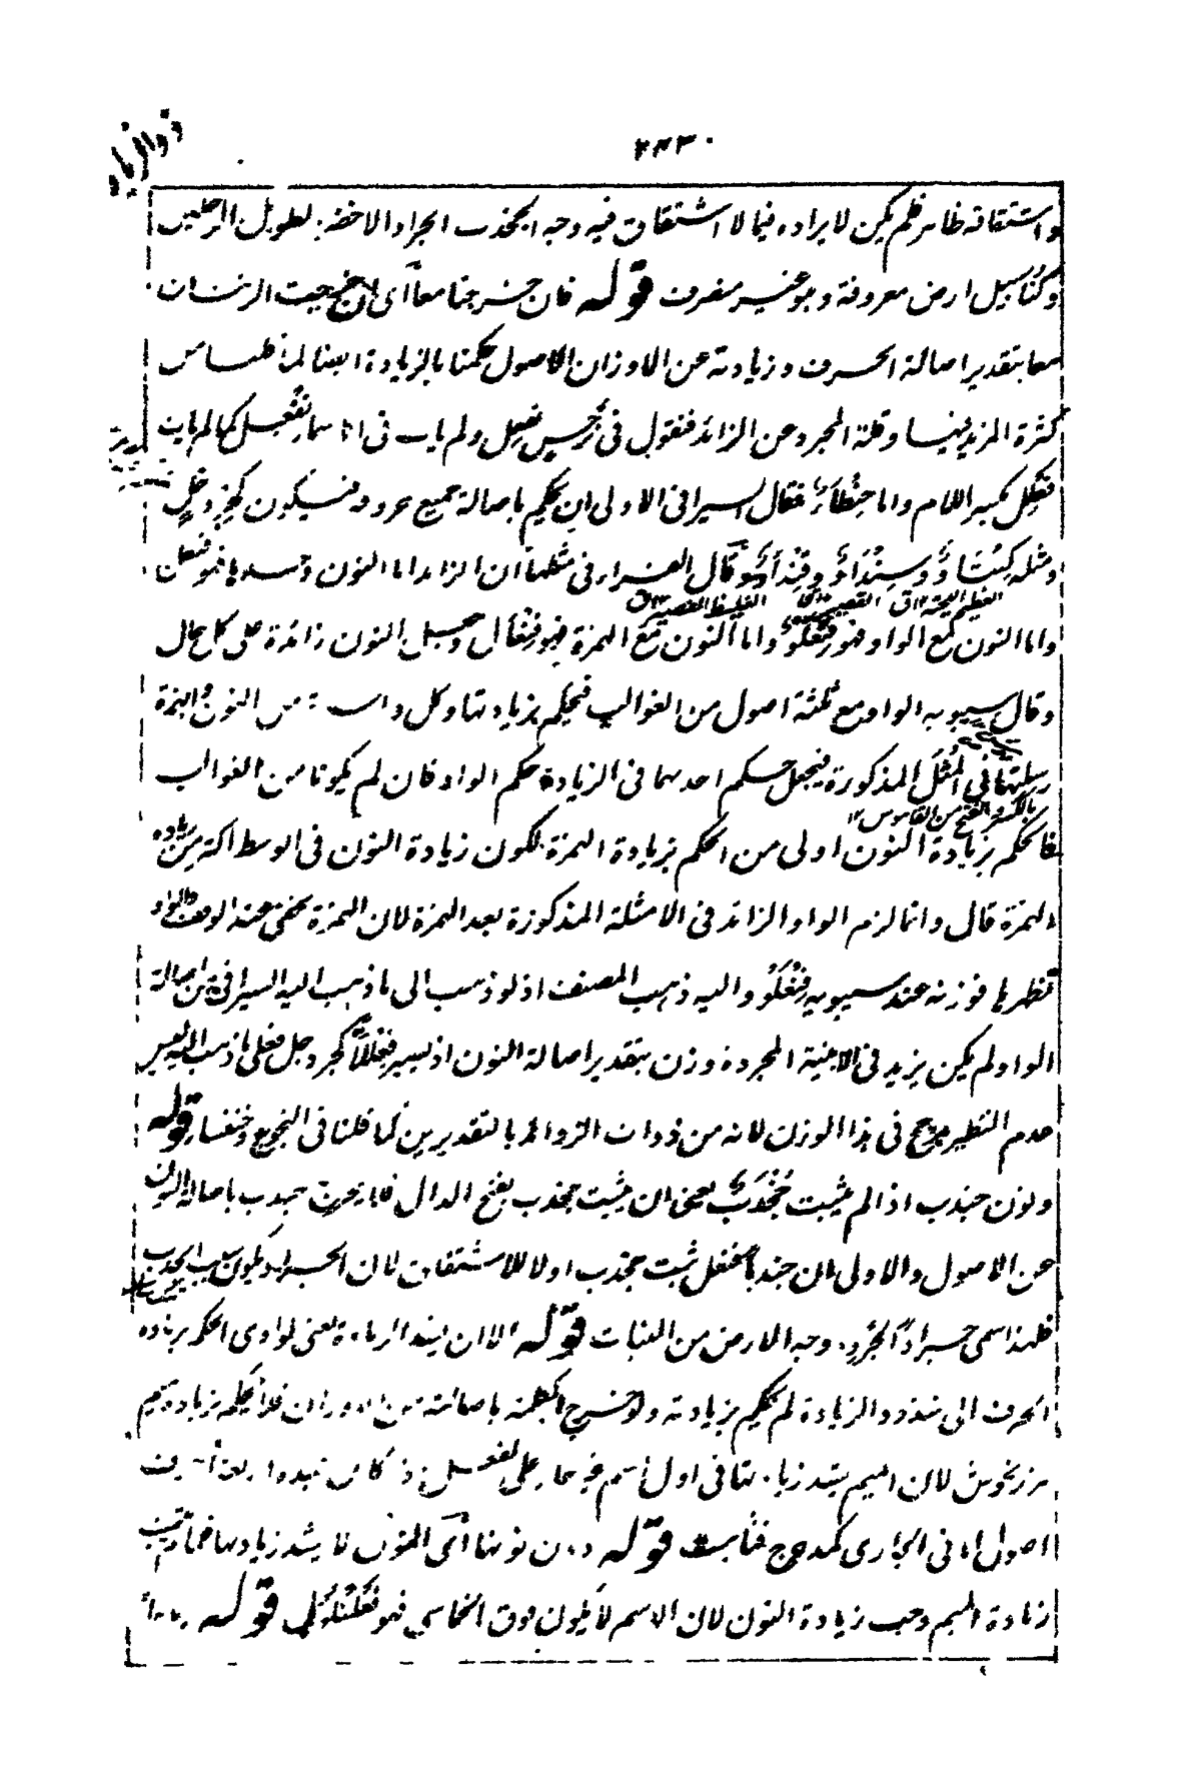 ذو الزيادة
٢٣٣٠
واشتقاقه ظاهر فلم يكن لايراده فيما لا اشتقاق فيه وجه الجخدب الجراد الاخضر الطويل الرجلين
وكنابيل ارض معروفة وهو غير منصرف قوله فان خرجتا معا اى ان خرجت الزنتان
معا بتقدير اصالة الحرف وزيادته عن الاوزان الاصول حكمنا بالزيادة ايضا لما
كثرة المزيد فيها وقلة المجرد عن الزائد فنقول فى نرجس نفعل ولم يات فى الاسماء نفعل كما لم يات
فعلل بكسر اللام واما حنطأو فقال السيرافى الاولى ان يحكم باصالة جميع حروفه فيكون كجردحل
ومثله كنتأو وسندأو وقندأو وقال الفراء فى مثلها ان الزائد اما النون وحدها فهو فنعل
العظيم اللحية ١٢ ق القصير ١٢ الغليظ القصير ١٢ ق
واما النون مع الواو فهو فنعلو واما النون مع الهمزة فهو فنعال وجعل النون زائدة على كل حال
وقال سيبويه الواو مع ثلثة اصول من الغوالب فيحكم بزيادتها وكل واحدة من النون والهمزة
رسيلتها فى المثل المذكورة فيجعل حكم احدهما فى الزيادة حكم الواو فان لم يكونا من الغوالب
بالكسر والفتح من القاموس ١٢
فالحكم بزيادة النون اولى من الحكم بزيادة الهمزة لكون زيادة النون فى الوسط اكثر من زيادة
الهمزة قال وانما لزم الواو الزائد فى الامثلة المذكورة بعد الهمزة لان الهمزة تخفى عند الوقف والواو
تظهرها فوزنه عند سيبويه فنعلو واليه ذهب المصنف اذ لو ذهب الى ما ذهب اليه السيرافى من اصالة
الواو لم يكن يزيد فى الابنية المجردة وزن بتقدير اصالة النون اذ يصير فعللا كجردحل فعلى ما ذهب اليه ليس
عدم النظير مرجح فى هذا الوزن لانه من ذوات الزوائد بالتقديرين كما قلنا فى النجوع وخنفساء قوله
ونون جندب اذا لم يثبت جخدب يعنى ان يثبت جخدب بفتح الدال فلا يخرج جندب باصالة النون
عن الاصول والاولى ان جندبا فنعل ثبت جخدب اولا للاشتقاق لان الجراد يكون سبب الجدب
فلهذا سمى جرادا لجرده وجه الارض من النبات قوله الا ان يشذ الزيادة يعنى لو ادى الحكم بزيادة
الحرف الى شذوذ الزيادة لم يحكم بزيادته ولو خرج الكلمة باصالته عن الاوزان فلا يحكم بزيادة ميم
مرزنجوش لان الميم يشذ زيادتها فى اول اسم غير جار على الفعل اذا كان بعده اربعة احرف
اصول اما فى الجارى كمدحرج فثابت قوله دون نونها اى النون لا يشذ زيادتها
زيادة الميم وجب زيادة النون لان الاسم لا يكون فوق الخماسى فهو فعلنلول قوله